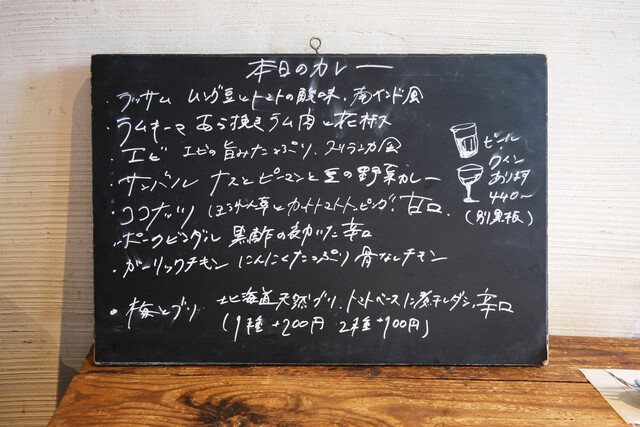 本日のカレー
・ラッサム ムング豆とトマトの酸味、南インド風
・ラムキーマ あら挽きラム肉と花椒
・エビ エビの旨みたっぷり、スリランカ風
・サンバル ナスとピーマンと豆の野菜カレー
・ココナッツ ほうれん草とカットトマトトッピング、甘口、
・ポークビンダル 黒酢の効いた辛口
・ガーリックチキン にんにくたっぷり 骨なしチキン
・梅とブリ 北海道天然ブリ、トマトベースに煮干しダシ、辛口
(1種 +200円 2種 +100円)
ビール
ワイン
あります
440〜
(別黒板)